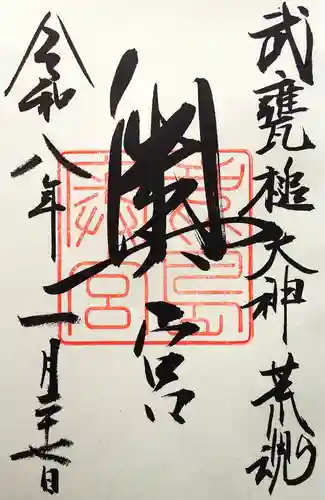 武甕槌大神 荒魂
奥宮
令和八年一月二十七日